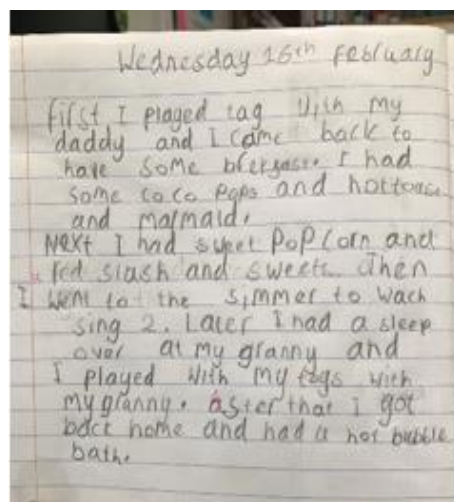 Wednesday 16th February
first I played tag With my
daddy and I came back to
have some brergast. I had
some coco pops and hottoase
and marmald.
Next I had sweet PoPcorn and
red slash and sweets. Then
I went to the simmer to wach
sing 2. Later I had a sleep
over at my granny and
I played with my togs with
my granny. aster that I got
back home and had a hot bubble
bath.